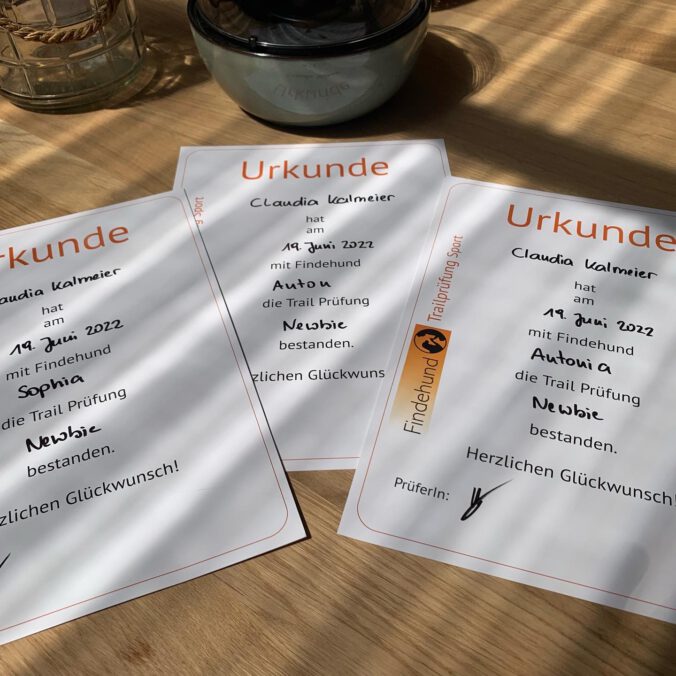 rkunde
audia Kalmeier
hat
am
19. Juni 2022
mit Findehund
Sophia
die Trail Prüfung
Newbie
bestanden.
zlichen Glückwunsch!
Urkunde
g Sport
Claudia Kalmeier
hat
am
19. Juni 2022
mit Findehund
Anton
die Trail Prüfung
Newbie
bestanden.
zlichen Glückwuns
Urkunde
Claudia Kalmeier
hat
am
19. Juni 2022
mit Findehund
Antonia
die Trail Prüfung
Newbie
bestanden.
Herzlichen Glückwunsch!
PrüferIn:
Findehund Trailprüfung Sport